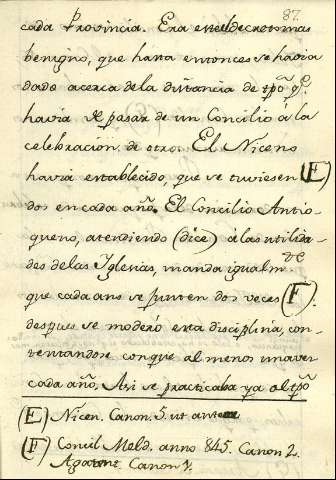 87.
cada Provincia. Era este el decreto mas
benigno, que hasta entonces se havia
dado acerca de la distancia de tpõ qᵉ
havia de pasar de un Concilio á la
celebracion de otro. El Niceno
havia establecido, que se tuviesen (E)
dos en cada año. El Concilio Antio-
queno, atendiendo (dice) á las utilida-
des de las Yglesias, manda igualmᵗᵉ
que cada año se junten dos veces (F).
despues se moderó esta disciplina, con-
tentandose con que al menos una vez
cada año. Asi se practicaba ya al tpõ
(E) Nicen. Canon. 5. ut
(F) Concil Meld. anno 845. Canon 2.
Canon 1.